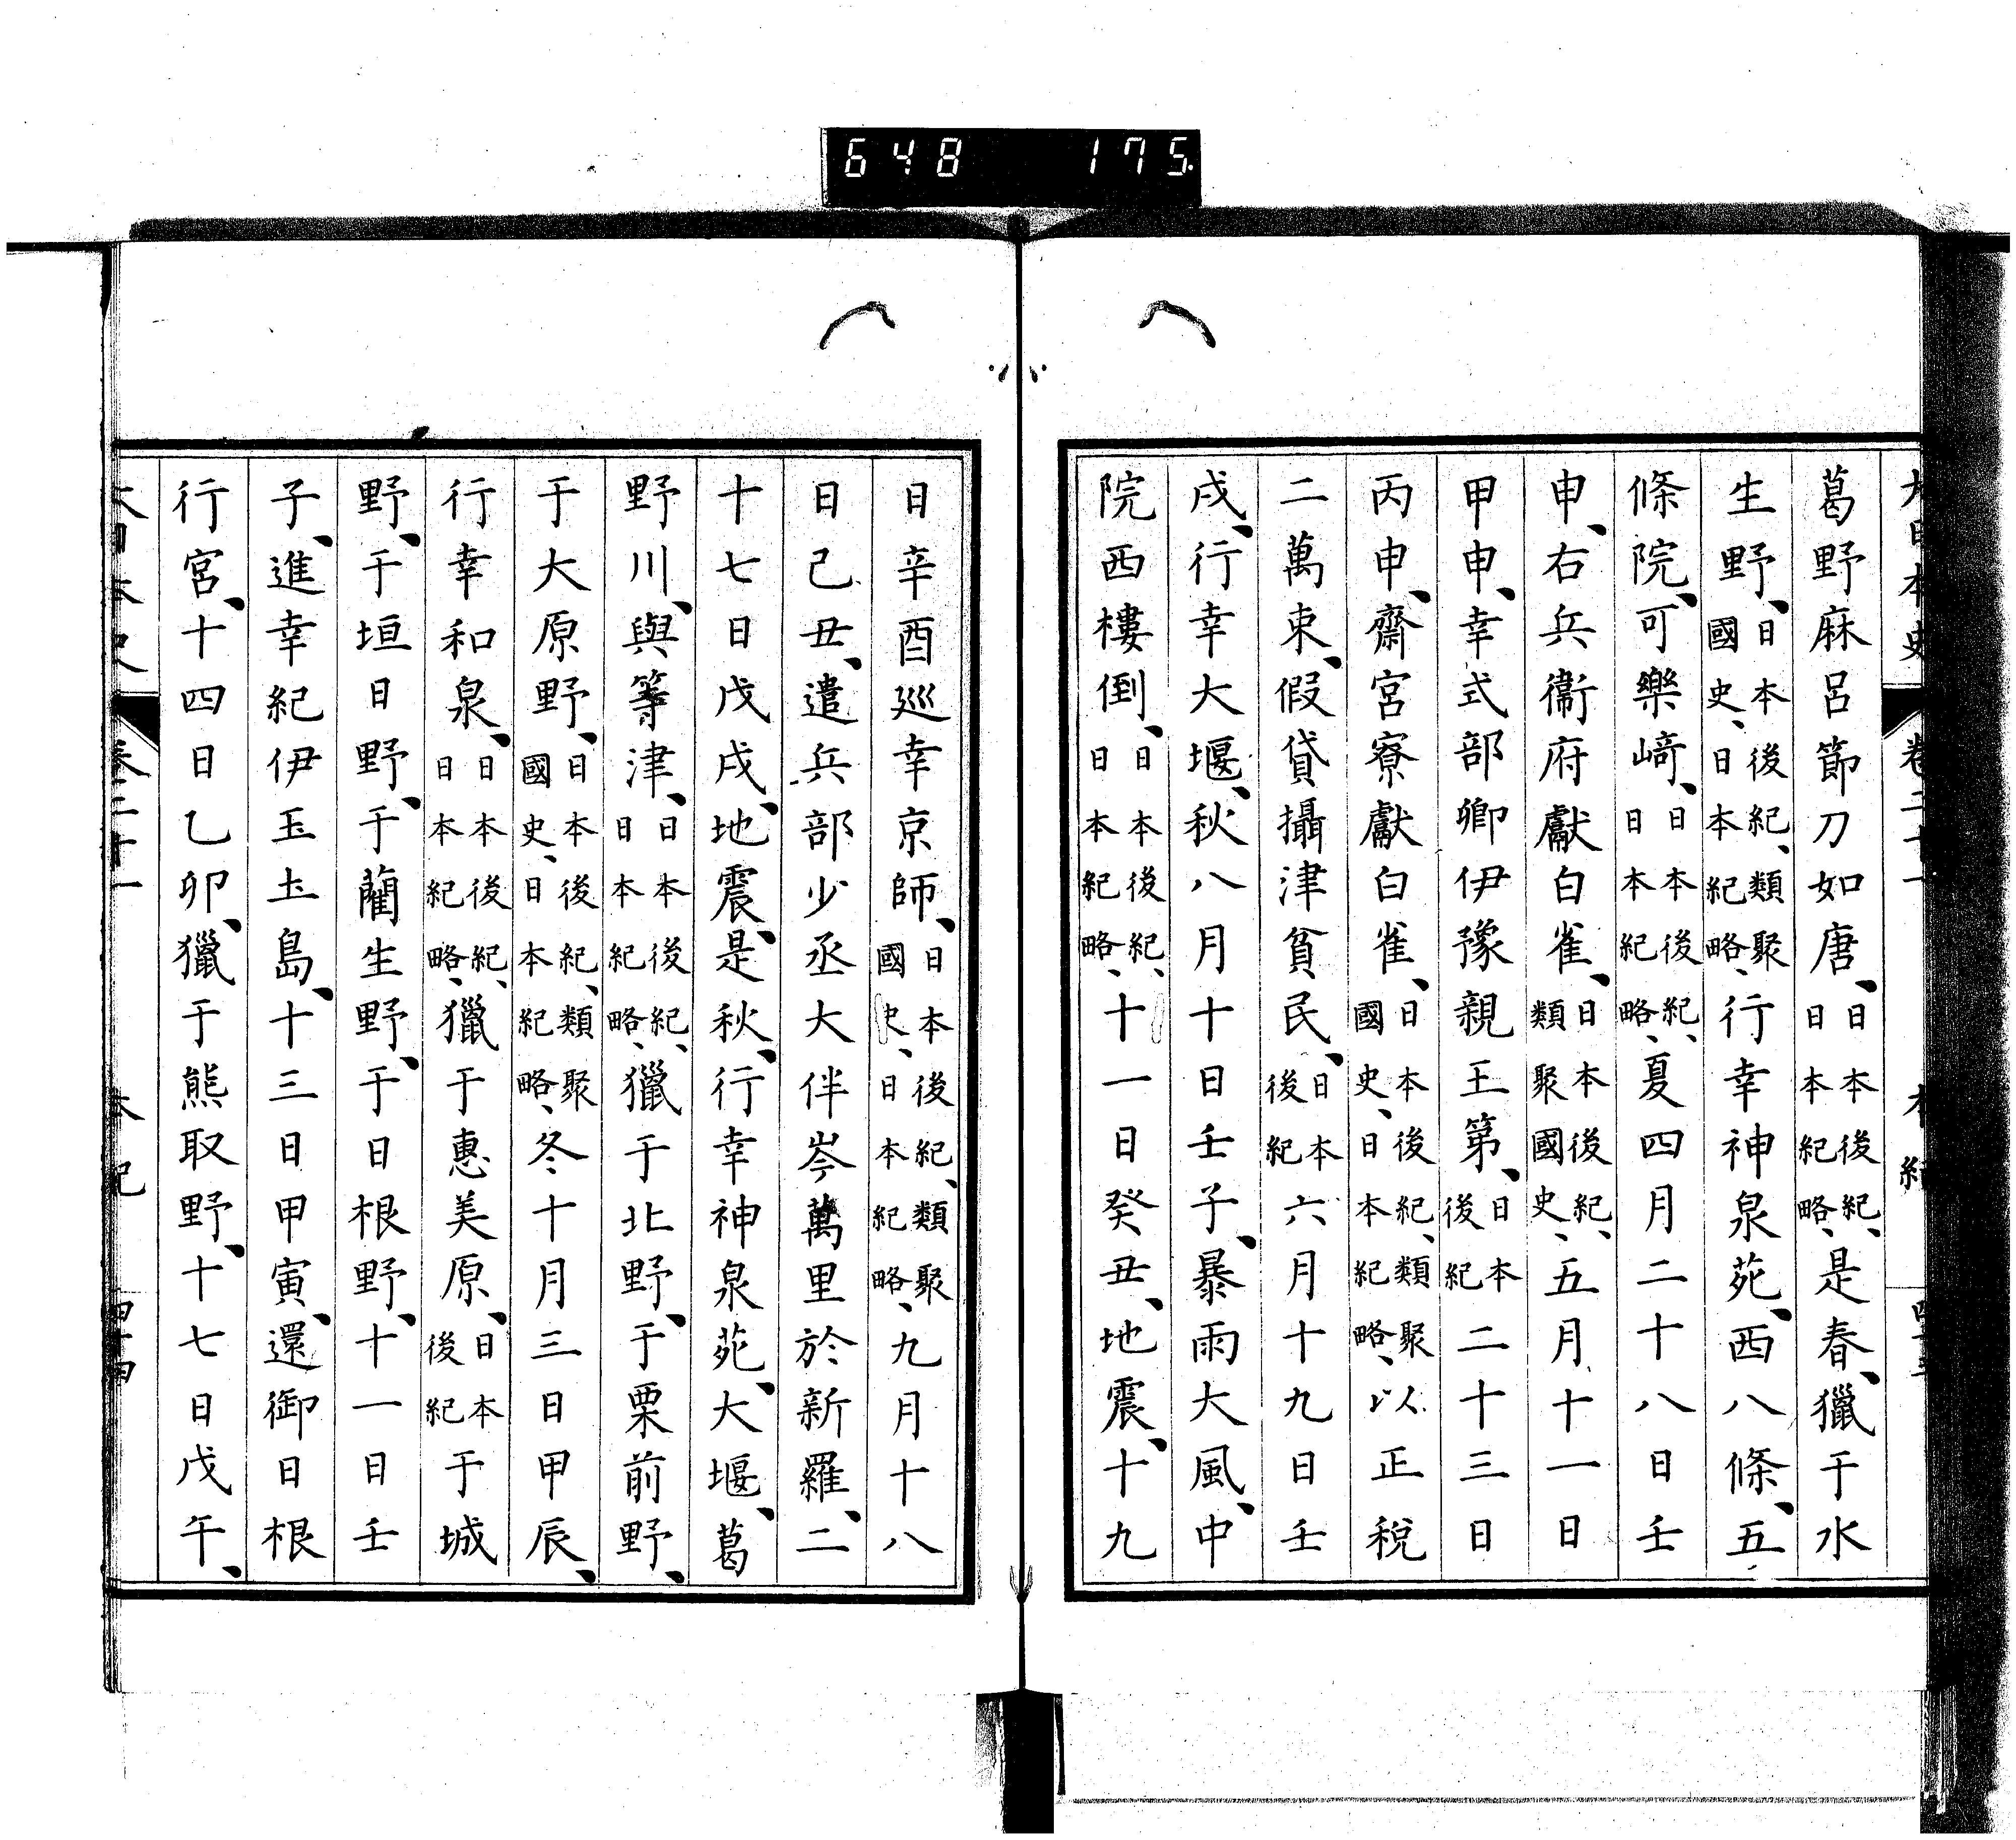 648 175
葛野麻呂節刀如唐、日本後紀、日本紀略、是春、獵于水
生野、日本後紀、類聚國史、日本紀略、行幸神泉苑、西八條、五
條院、可樂﨑、日本後紀、日本紀略、夏四月二十八日壬
申、右兵衞府獻白雀、日本後紀、類聚國史、五月十一日
甲申、幸式部卿伊豫親王第、日本後紀二十三日
丙申、齋宮寮獻白雀、日本後紀、類聚國史、日本紀略、以正稅
二萬束、假貸攝津貧民、日本後紀六月十九日壬
戌、行幸大堰、秋八月十日壬子、暴雨大風、中
院西樓倒、日本後紀、日本紀略、十一日癸丑、地震、十九
日辛酉巡幸京師、日本後紀、類聚國史、日本紀略、九月十八
日己丑、遣兵部少丞大伴岑萬里於新羅、二
十七日戊戌、地震、是秋、行幸神泉苑、大堰、葛
野川、與等津、日本後紀、日本紀略、獵于北野、于栗前野、
于大原野、日本後紀、類聚國史、日本紀略、冬十月三日甲辰、
行幸和泉、日本後紀、日本紀略、獵于惠美原、日本後紀于城
野、于垣日野、于藺生野、于日根野、十一日壬
子、進幸紀伊玉土島、十三日甲寅、還御日根
行宮、十四日乙卯、獵于熊取野、十七日戊午、
大日本史 卷二十一 本紀